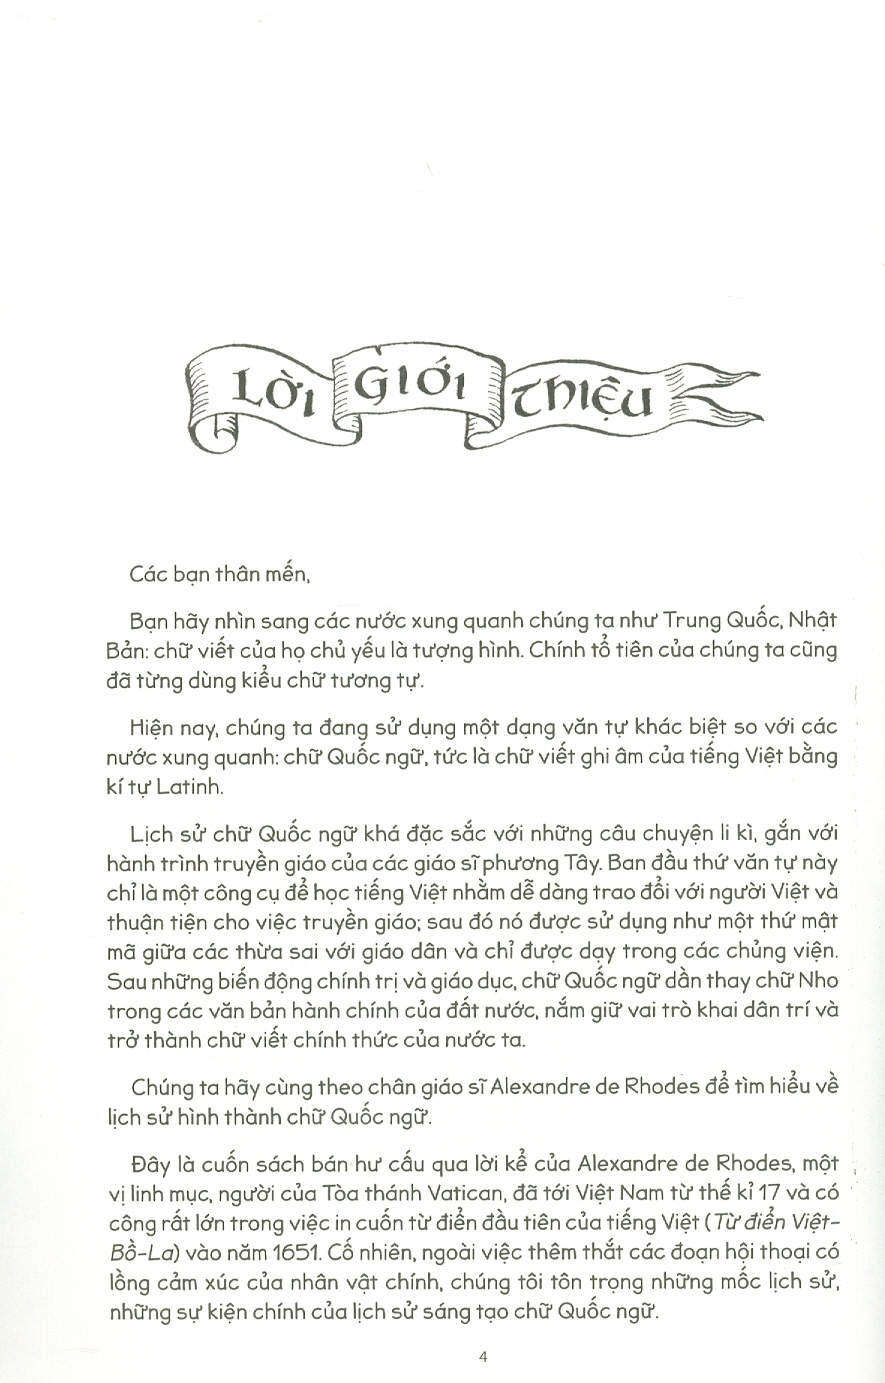 Lời giới thiệu
Các bạn thân mến,
Bạn hãy nhìn sang các nước xung quanh chúng ta như Trung Quốc, Nhật
Bản: chữ viết của họ chủ yếu là tượng hình. Chính tổ tiên của chúng ta cũng
đã từng dùng kiểu chữ tương tự.
Hiện nay, chúng ta đang sử dụng một dạng văn tự khác biệt so với các
nước xung quanh: chữ Quốc ngữ, tức là chữ viết ghi âm của tiếng Việt bằng
kí tự Latinh.
Lịch sử chữ Quốc ngữ khá đặc sắc với những câu chuyện li kì, gắn với
hành trình truyền giáo của các giáo sĩ phương Tây. Ban đầu thứ văn tự này
chỉ là một công cụ để học tiếng Việt nhằm dễ dàng trao đổi với người Việt và
thuận tiện cho việc truyền giáo; sau đó nó được sử dụng như một thứ mật
mã giữa các thừa sai với giáo dân và chỉ được dạy trong các chủng viện.
Sau những biến động chính trị và giáo dục, chữ Quốc ngữ dần thay chữ Nho
trong các văn bản hành chính của đất nước, nắm giữ vai trò khai dân trí và
trở thành chữ viết chính thức của nước ta.
Chúng ta hãy cùng theo chân giáo sĩ Alexandre de Rhodes để tìm hiểu về
lịch sử hình thành chữ Quốc ngữ.
Đây là cuốn sách bán hư cấu qua lời kể của Alexandre de Rhodes, một
vị linh mục, người của Tòa thánh Vatican, đã tới Việt Nam từ thế kỉ 17 và có
công rất lớn trong việc in cuốn từ điển đầu tiên của tiếng Việt (Từ điển Việt–
Bồ–La) vào năm 1651. Cố nhiên, ngoài việc thêm thắt các đoạn hội thoại có
lồng cảm xúc của nhân vật chính, chúng tôi tôn trọng những mốc lịch sử,
những sự kiện chính của lịch sử sáng tạo chữ Quốc ngữ.
4